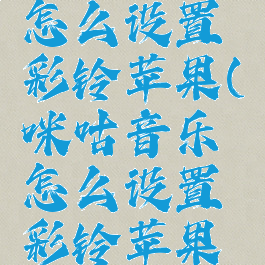 怎么设置
彩铃苹果(
咪咕音乐
怎么设置
彩铃苹果